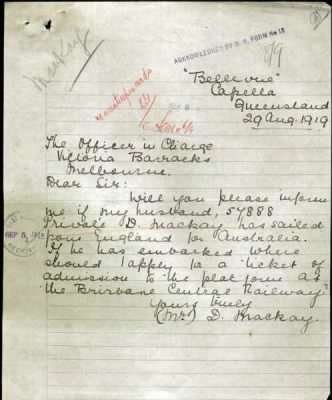 Mackay
ACKNOWLEDGED BY B. R. FORM No 18
"Bellevue"
Capella
Queensland
29 Aug. 1919
The Officer in Charge
Victoria Barracks
Melbourne.
Dear Sir:
Will you please inform
me if my husband, 57888
Private D. Mackay has sailed
from England for Australia.
If he has embarked where
should I apply for a ticket of
admission to the platform at
the Brisbane Central Railway?
Yours truly
(Mrs) D. Mackay.